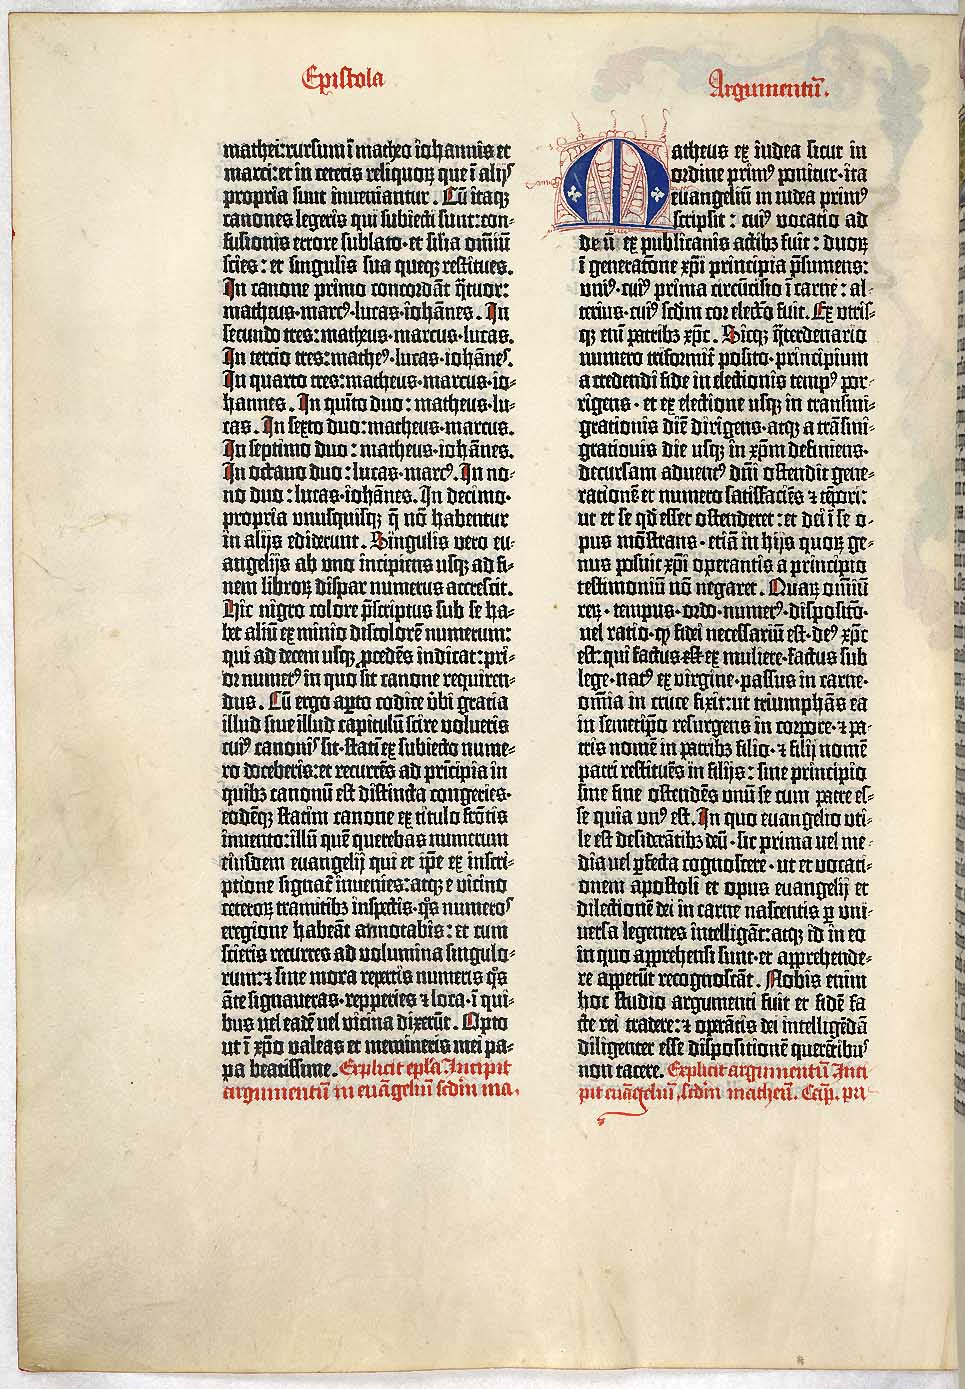 Epistola
mathei: rursum ī matheo iohannis et
marci: et in ceteris reliquoꝝ que ī alijs
propria sunt inveniantur. Cū itaqꝫ
canones legeris qui subiecti sunt: con-
fusionis errore sublato· et silia omīnū
scies: et singulis sua queqꝫ restitues.
In canone primo concordāt q̄tuor:
matheus· marcꝰ· lucas· iohānes. In
secundo tres: matheus· marcus· lucas.
In tercio tres: matheꝰ· lucas· iohānes.
In quarto tres: matheus· marcus· io-
hannes. In quīto duo: matheus· lu-
cas. In sexto duo: matheus· marcus.
In septimo duo: matheus· iohānes.
In octavo duo: lucas· marcꝰ. In no-
no duo: lucas· iohānes. In decimo·
propria vnusquisqꝫ q̄ nō habentur
in alijs ediderunt. Singulis vero eu-
angelijs ab vno incipiens usqꝫ ad fi-
nem libroꝝ dispar numerus accrescit.
Hic nigro colore p̄scriptus sub se ha-
bet aliū ex minio discolorē numerum:
qui ad decem usqꝫ ꝓcedēs indicat: pri-
or numerꝰ in quo sit canone requiren-
dus. Cū ergo aꝑto codice v̄bi gratia
illud sive illud capitulū scire volueris
cuiꝰ canonis sit· stati ex subiecto nume-
ro doceberis: et recurrēs ad prīcipia in
quibꝫ canonū est distincta congeries·
eodēqꝫ statim canone ex titulo frōtis
invento: illū quē querebas numerum
eiusdem euangelij qui et ip̄e ex inscri-
ptione signat᷑ invenies: atqꝫ e vicino
ceteroꝝ tramitibꝫ inspectis· q̊s numeros
eregione habeāt annotabis: et cum
scieris recurres ad volumina singulo-
rum: ⁊ sine mora repertis numeris q̊s
āte signaveras· repperies ⁊ loca· ī qui-
bus vel eadē vel vicina dixerūt. Opto
ut ī xp̄o valeas et memineris mei pa-
pa beatissime. Explicit ep̄la. Incipit
argumentū in euāgeliū scd̄m ma.
Argumentū.
Matheus ex iudea sicut in
ordine primꝰ ponitur· ita
euangelium in iudea primꝰ
scripsit: cuiꝰ vocatio ad
deū ex publicanis actibꝫ fuit: duoꝝ
ī generatōne xp̄i principia p̄sumens:
vniꝰ· cuiꝰ prima circūcisio ī carne: al-
terius· cuiꝰ scd̄m cor electo fuit. Ex vtris-
qꝫ eni patribꝫ xp̄c. Sicqꝫ q̄terdenario
numero triformit᷑ posito· principium
a credendi fide in electionis tempꝰ por-
rigens· et ex electione usqꝫ in transmi-
grationis diē dirigens· atqꝫ a trāsmi-
grationis die usqꝫ in xp̄m definiens·
decursam adventꝰ dn̄i ostendit gene-
rationē et numero satisfaciēs ⁊ tēpori:
ut et se qd̄ esset ostenderet: et dei ī se o-
pus mōstrans· etiā in hijs quoꝝ ge-
nus posuit xp̄i operantis a principio
testimoniū nō negaret. Quaꝝ omīniū
reꝝ· tempus· ordo· numerꝰ· disposito·
vel ratio· qꝫ fidei necessariū est· deꝰ xp̄c
est: qui factus est ex muliere· factus sub
lege· natꝰ ex virgine· passus in carne·
omīa in cruce fixit: ut triumphās ea
in semetip̄o resurgens in corpore· ⁊ pa-
tris nomē in patribꝫ filio· ⁊ filij nomē
patri restituēs in filijs: sine principio
sine fine ostendēs vnū se cum patre es-
se quia vnꝰ est. In quo euangelio uti-
le est desiderātibꝫ deū· sic prima vel me-
dia vel ꝑfecta cognoscere· ut et vocati-
onem apostoli et opus euangelij et
dilectionē dei in carne nascentis ꝑ vni-
versa legentes intelligāt: atqꝫ id in eo
in quo apprehensi sunt· et apprehende-
re appetūt recognoscāt. Nobis enim
hoc studio argumenti fuit et fidē fa
cte rei tradere: ⁊ operātis dei intelligēdā
diligenter esse dispositionē querētibus
non tacere. Explicit argumentū Inci
pit euāgeliū scd̄m matheū. Cap̄. pri